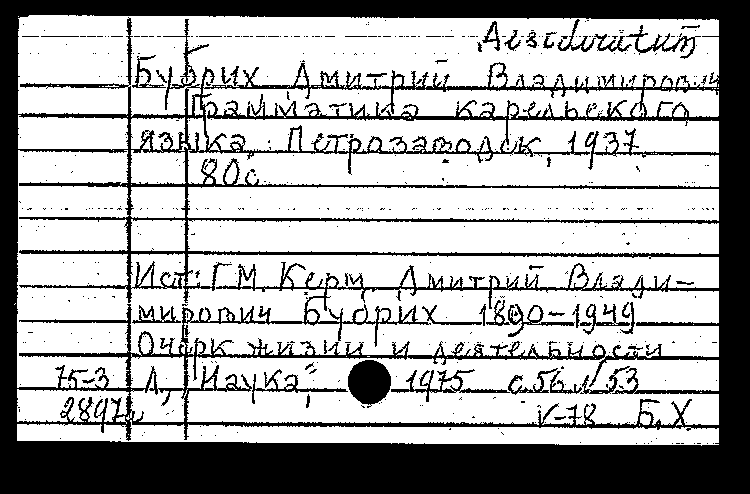 Desideratum
Бубрих Дмитрий Владимирович
Грамматика карельского
языка. Петрозаводск, 1937.
80с
Ист: Г.М. Керт. Дмитрий Влади-
мирович Бубрих 1890-1949
Очерк жизни и деятельности
75-3 Л, "Наука", 1975 с.56 №53
2897
V-78 Б.Х.